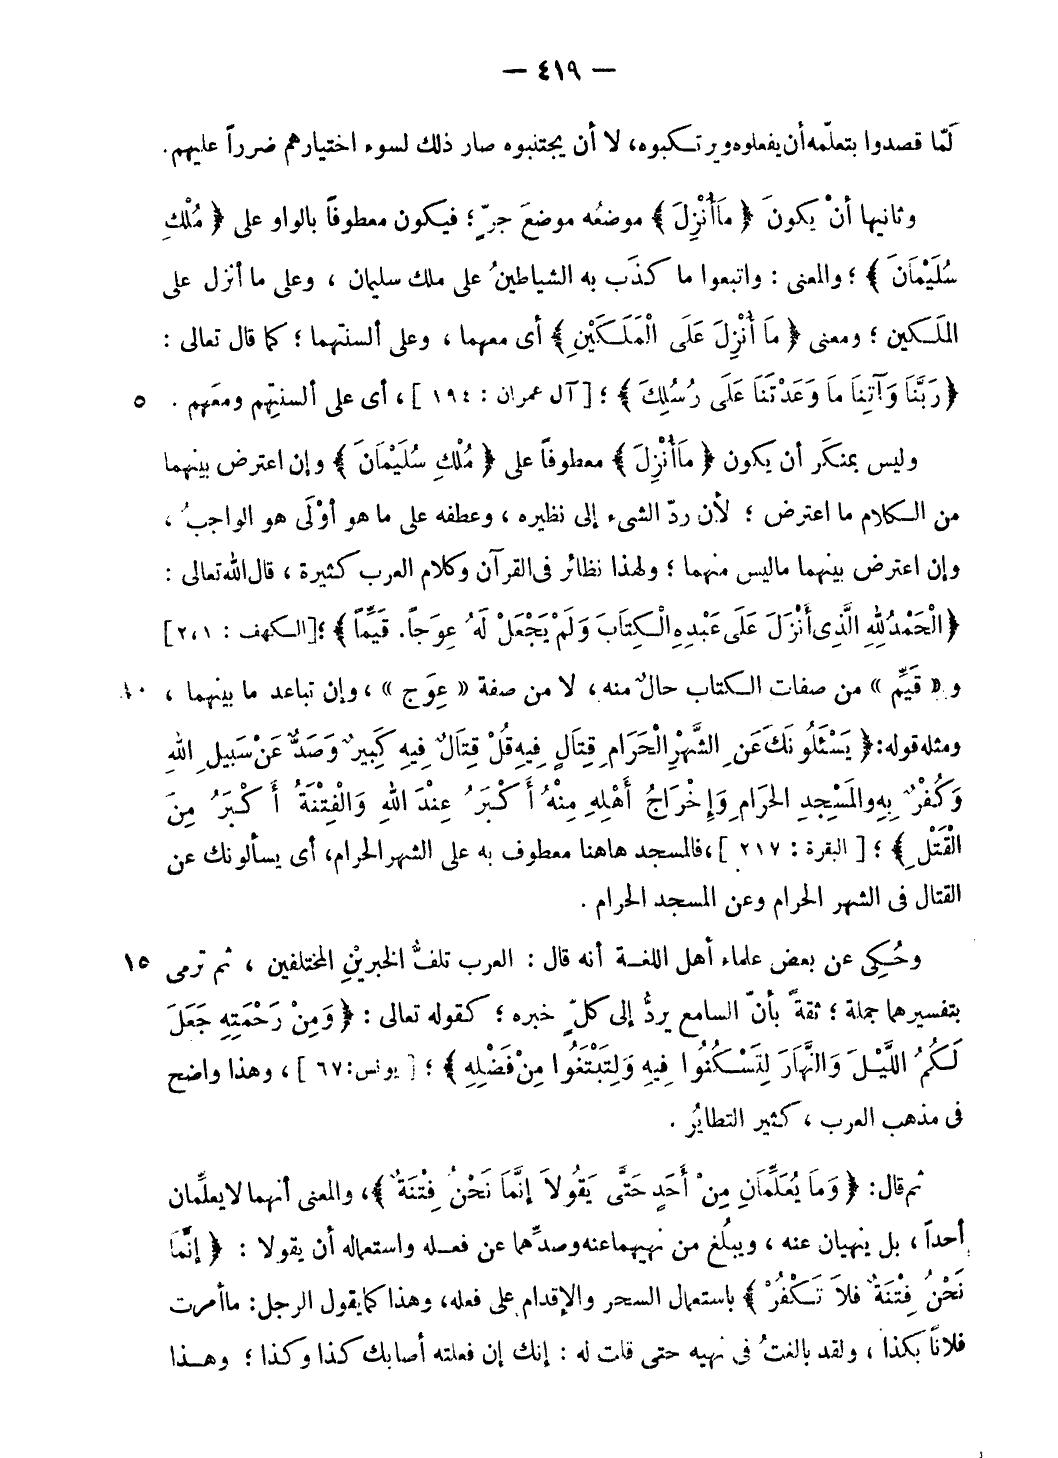 — ٤١٩ —
كَمّا قصدوا بتعلّمه أن يفعلوه ويرتكبوه، لا أن يجتنبوه صار ذلك لسوء اختيارهم ضرراً عليهم.
وثانيها أنْ يكونَ ﴿ مَا أُنْزِلَ ﴾ موضعُه موضعَ جرٍّ؛ فيكون معطوفاً بالواو على ﴿ مُلْكِ
سُلَيْمَانَ ﴾ ؛ والمعنى : واتبعوا ما كذَب به الشياطينُ على ملك سليمان ، وعلى ما أنزل على
الملَكين ؛ ومعنى ﴿ مَا أُنْزِلَ عَلَى الْمَلَكَيْنِ ﴾ أى معهما ، وعلى ألسنتّهما ؛ كما قال تعالى :
﴿ رَبَّنَا وَآتِنَا مَا وَعَدْتَنَا عَلَى رُسُلِكَ ﴾ ؛ [ آل عمران : ١٩٤ ] ، أى على ألسنتِهم ومعَهم . ٥
وليس بمنكَر أن يكون ﴿ مَا أُنْزِلَ ﴾ معطوفاً على ﴿ مُلْكِ سُلَيْمَانَ ﴾ وإن اعترض بينهما
من الكلام ما اعترض ؛ لأن ردّ الشىء إلى نظيره ، وعطفه على ما هو أوْلَى هو الواجبُ ،
وإن اعترض بينهما ماليس منهما ؛ ولهذا نظائر فى القرآن وكلام العرب كثيرة ، قال الله تعالى :
﴿ الْحَمْدُ لِلهِ الَّذِى أَنْزَلَ عَلَى عَبْدِهِ الْكِتَابَ وَلَمْ يَجْعَلْ لَهُ عِوَجاً. قَيِّماً ﴾ ؛ [الكهف : ٢،١]
و « قَيِّم » من صفات الكتاب حالٌ منه، لا من صفة « عِوَج » ، وإن تباعد ما بينهما ، ١٠
ومثله قوله: ﴿ يَسْئَلُونَكَ عَنِ الشَّهْرِ الْحَرَامِ قِتَالٍ فِيهِ قُلْ قِتَالٌ فِيهِ كَبِيرٌ وَصَدٌّ عَنْ سَبِيلِ اللهِ
وَكُفْرٌ بِهِ والمَسْجِدِ الحَرَامِ وَإِخْرَاجُ أَهْلِهِ مِنْهُ أَكْبَرُ عِنْدَ اللهِ وَالْفِتْنَةُ أَكْبَرُ مِنَ
الْقَتْلِ ﴾ ؛ [ البقرة : ٢١٧ ] ،فالمسجد هاهنا معطوف به على الشهر الحرام، أى يسألونك عن
القتال فى الشهر الحرام وعن المسجد الحرام .
وحُكِى عن بعض علماء أهل اللغـة أنه قال : العرب تلفُّ الخبريْنِ المختلفين ، ثم ترمى ١٥
بتفسيرهما جملة ؛ ثقةً بأنّ السامع يردُّ إلى كلّ خبره ؛ كقوله تعالى : ﴿ وَمِنْ رَحْمَتِهِ جَعَلَ
لَكُمُ اللَّيْلَ وَالنَّهَارَ لِتَسْكُنُوا فِيهِ وَلِتَبْتَغُوا مِنْ فَضْلِهِ ﴾ ؛ [ يونس: ٦٧ ] ، وهذا واضح
فى مذهب العرب ، كثير النظائرُ .
ثم قال: ﴿ وَمَا يُعَلِّمَانِ مِنْ أَحَدٍ حَتَّى يَقُولاَ إِنَّمَا نَحْنُ فِتْنَةٌ ﴾، والمعنى أنهما لا يعلِّمان
أحداً ، بل ينهيان عنه ، ويبلُغ من نهيهما عنه وصدِّهما عن فعـله واستعماله أن يقولا : ﴿ إِنَّمَا
نَحْنُ فِتْنَةٌ فَلاَ تَكْفُرْ ﴾ باستعمال السحر والإقدام على فعله، وهذا كما يقول الرجل: ما أمرت
فلاناً بكذا ، ولقد بالغتُ فى نهيه حتى قلت له : إنك إن فعلته أصابك كذا وكذا ؛ وهـذا